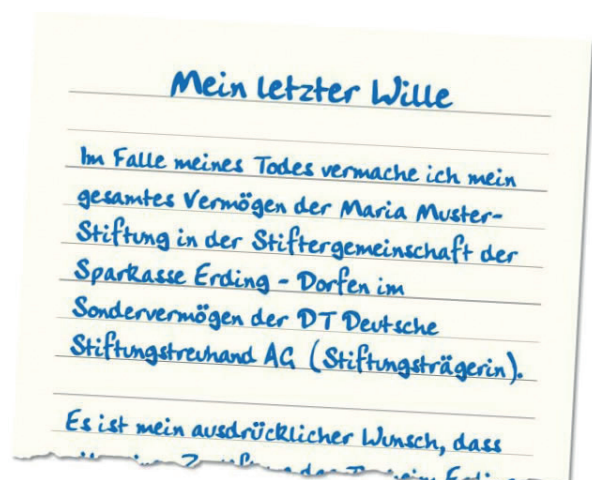 Mein letzter Wille
Im Falle meines Todes vermache ich mein
gesamtes Vermögen der Maria Muster-
Stiftung in der Stiftergemeinschaft der
Sparkasse Erding - Dorfen im
Sondervermögen der DT Deutsche
Stiftungstreuhand AG (Stiftungsträgerin).
Es ist mein ausdrücklicher Wunsch, dass